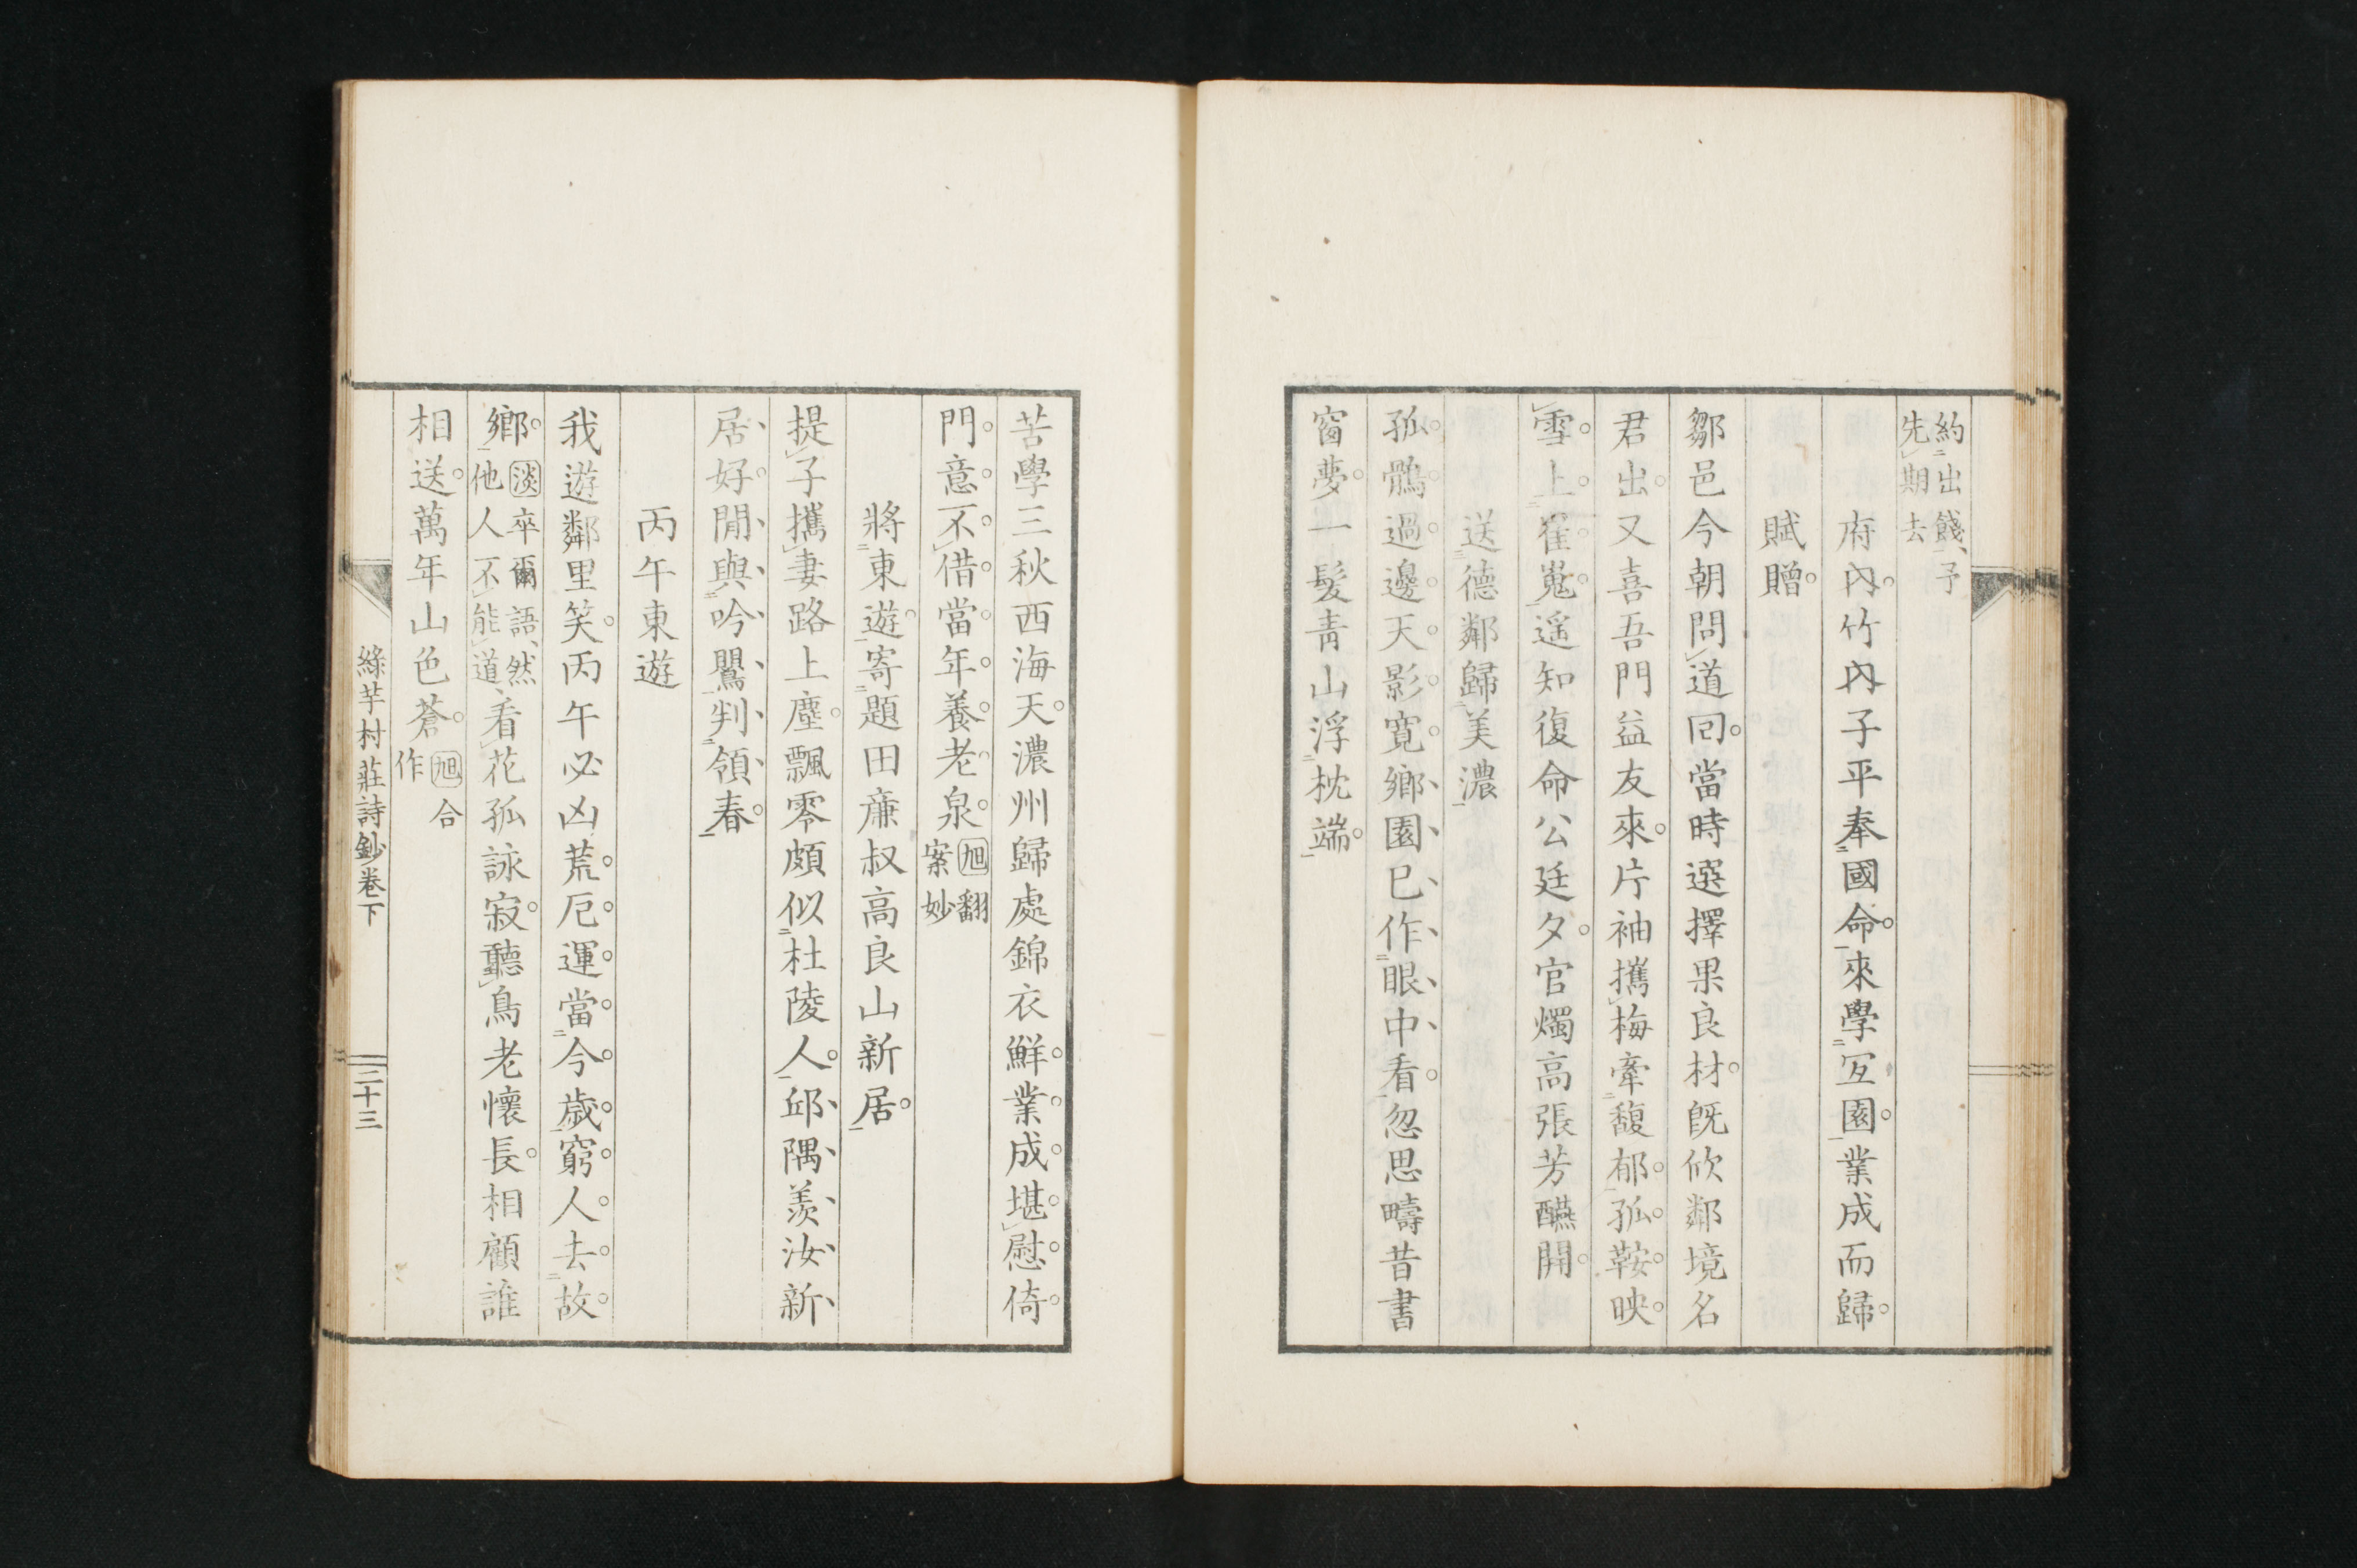 約出餞予
先期去
府內竹內子平奉國命來學㝡園業成而歸
賦贈
鄒邑今朝問道回當時選擇果良材既欣鄰境名
君出又喜吾門益友來片袖攜梅牽馥郁孤鞍映
雪上崔嵬遥知復命公廷夕官燭高張芳醼開
送德鄰歸美濃
孤鶻過邊天影寬鄉園已作眼中看忽思疇昔書
窗夢一髮靑山浮枕端
苦學三秋西海天濃州歸處錦衣鮮業成堪慰倚
門意不借當年養老泉旭翻
案妙
將東遊寄題田廉叔高良山新居
提子攜妻路上塵飄零頗似杜陵人邱隅羨汝新
居好閒與吟鸎判領春
丙午東遊
我遊鄰里笑丙午必凶荒厄運當今歲窮人去故
鄉淡卒爾語然
他人不能道看花孤詠寂聽鳥老懷長相顧誰
相送萬年山色蒼旭合
作
綠芋村莊詩鈔卷下
二十三